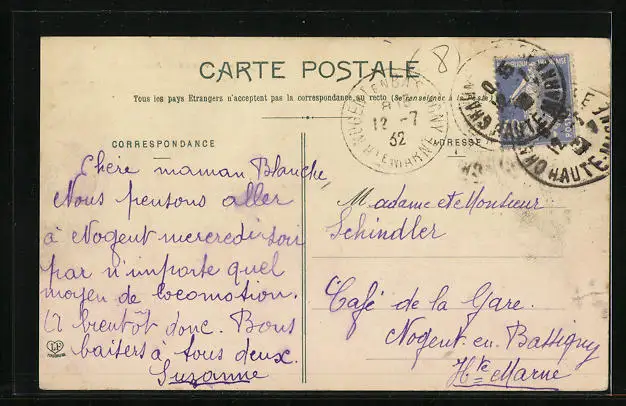 8
CARTE POSTALE
Tous les pays Etrangers n'acceptent pas la correspondance au recto (Se renseigner à la Poste)
CORRESPONDANCE
ADRESSE
12 -7
32
HTE MARNE
HAUTE
HAUTE-M
Chère maman Blanche
Nous pensons aller
à Nogent mercredi soir
par n'importe quel
moyen de locomotion.
A bientôt donc. Bons
baisers à tous deux.
Suzanne
Madame et Monsieur
Schindler
Café de la Gare.
Nogent-en-Bassigny
Hte Marne